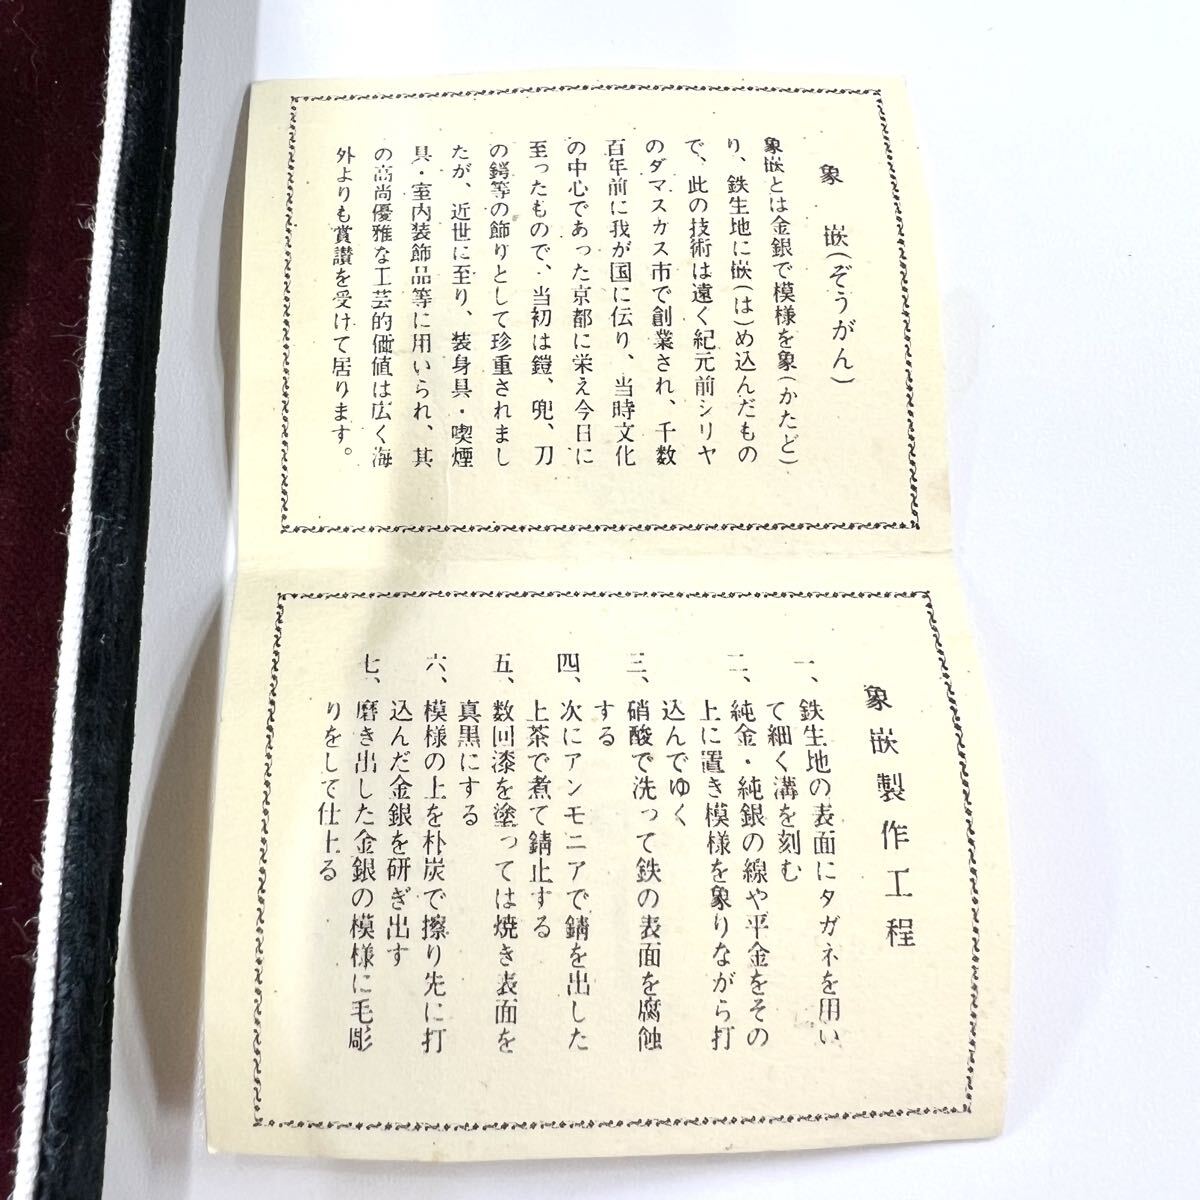 象　嵌(ぞうがん)
象嵌とは金銀で模様を象(かたど)
り、鉄生地に嵌(は)め込んだもの
で、此の技術は遠く紀元前シリヤ
のダマスカス市で創業され、千数
百年前に我が国に伝り、当時文化
の中心であった京都に栄え今日に
至ったもので、当初は鎧、兜、刀
の鍔等の飾りとして珍重されまし
たが、近世に至り、装身具・喫煙
具・室内装飾品等に用いられ、其
の高尚優雅な工芸的価値は広く海
外よりも賞讃を受けて居ります。
象嵌製作工程
一、鉄生地の表面にタガネを用い
て細く溝を刻む
二、純金・純銀の線や平金をその
上に置き模様を象りながら打
込んでゆく
三、硝酸で洗って鉄の表面を腐蝕
する
四、次にアンモニアで錆を出した
上茶で煮て錆止する
五、数回漆を塗っては焼き表面を
真黒にする
六、模様の上を朴炭で擦り先に打
込んだ金銀を研ぎ出す
七、磨き出した金銀の模様に毛彫
りをして仕上る